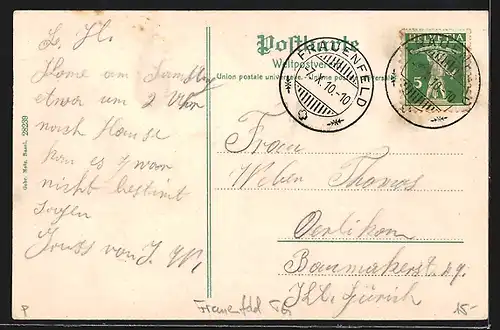 L. H.
Kome am Samstag
etwa um 2 Uhr
nach Hause
kan es zwar
nicht bestimt
sagen
Gruss von J. W.
Gebr. Metz, Basel. 28239
Postkarte
Weltpostverein
Union postale universelle.
FRAUENFELD
10.-10
HELVETIA
5
Frau
Weber Thomas
Oerlikon
Kt. Zürich
Frauenfeld
15-
P